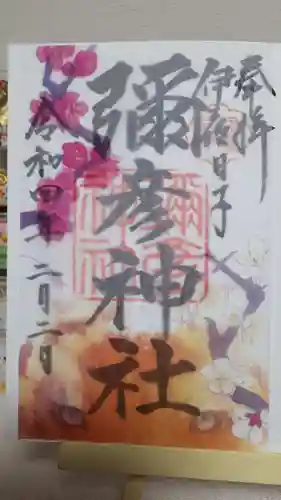 奉拝
伊佐日子
彌彦神社
令和四年二月二日